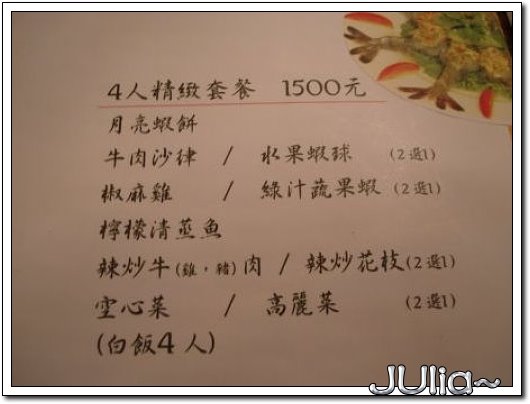 4人精緻套餐 1500元
月亮蝦餅
牛肉沙律 / 水果蝦球 (2選1)
椒麻雞 / 綠汁蔬果蝦 (2選1)
檸檬清蒸魚
辣炒牛(雞,豬)肉 / 辣炒花枝(2選1)
空心菜 / 高麗菜 (2選1)
(白飯4人)
JUlia~